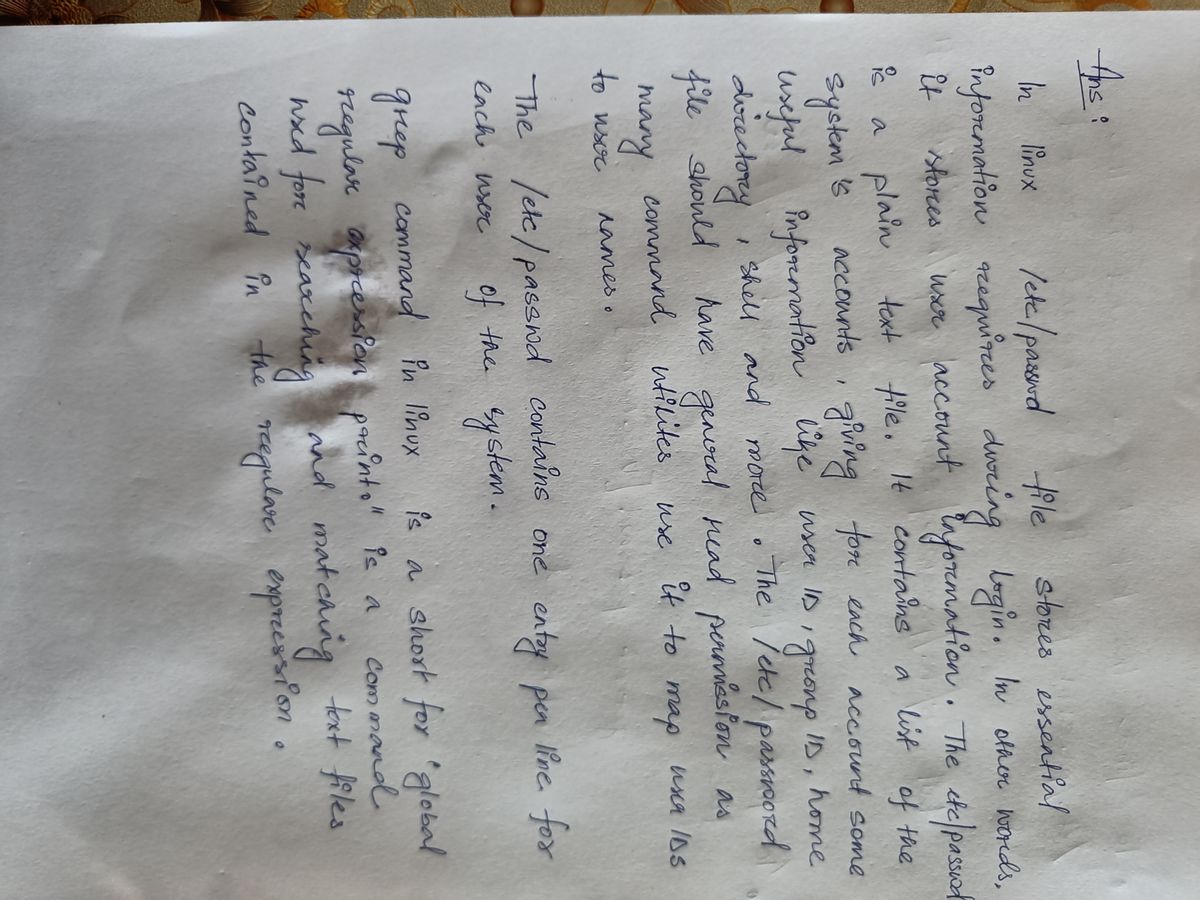 Ans:
In linux /etc/passwd file stores essential
information requires during login. In other words,
it stores user account information. The etc/passwd
is a plain text file. It contains a list of the
system's accounts, giving for each account some
useful information like user ID, group ID, home
directory, shell and more. The /etc/password
file should have general read permission as
many command utilites use it to map user IDs
to user names.
The /etc/passwd contains one entry per line for
each user of the system.
grep command in linux is a short for "global
regular expression print" is a command
used for searching and matching text files
contained in the regular expression.